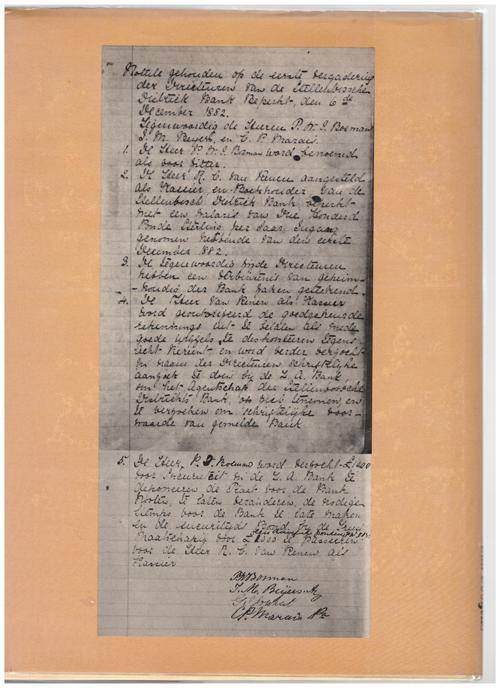 Notule gehouden op de eerste Vergadering
der Directeuren van de Stellenbossche
Distriek Bank Beperkt, den 6 de
December 1882.
Tegenwoordig de Heeren P. W. J. Bosman
J. M. Beyers, en C. P. Marais.
1. De Heer P. W. J. Bosman word benoemd
als voor zitter.
2. De Heer R. C. van Renen aangesteld
als Kassier en Boekhouder van de
Stellenbosch Distriekt Bank beperkt
met een salaris van Drie honderd
Ponde Sterling per Jaar, Ingang
genomen hebbende van dein eerste
December 1882.
3. De Tegenwoordig zijnde Directeuren
hebben een verbintenis van geheim-
houding der Bank zaken geteekend
4. De Heer van Renen als Kassier
word geoutoriseerd de goedgekeurde
rekenings uit te betalen als mede
goede wissels te disconteeren tegens
zicht Rerient en word verder verzocht
in naam der Directeuren schriftelijke
aanzoek te doen bij de Z. A. Bank
om het Agentschap der Stellenbossche
Distriekts Bank, op zich te nemen, en
te verzoeken om schriftelijke voor-
waarde van gemelde Bank
5. De Heer P. J. Bosman word verzocht £1200
voor Securiteit in de Z. A. Bank te
deponeren de Plaat voor de Bank
Noten te laten veranderen, de nodigen
Stamps voor de Bank te late maken
en de securiteids Bond bij de
Maatschappij voor £1000 te passeeren
voor de Heer R. C. van Renen als
Kassier
PWBosman
J. M. Beyers
C. P. Marais